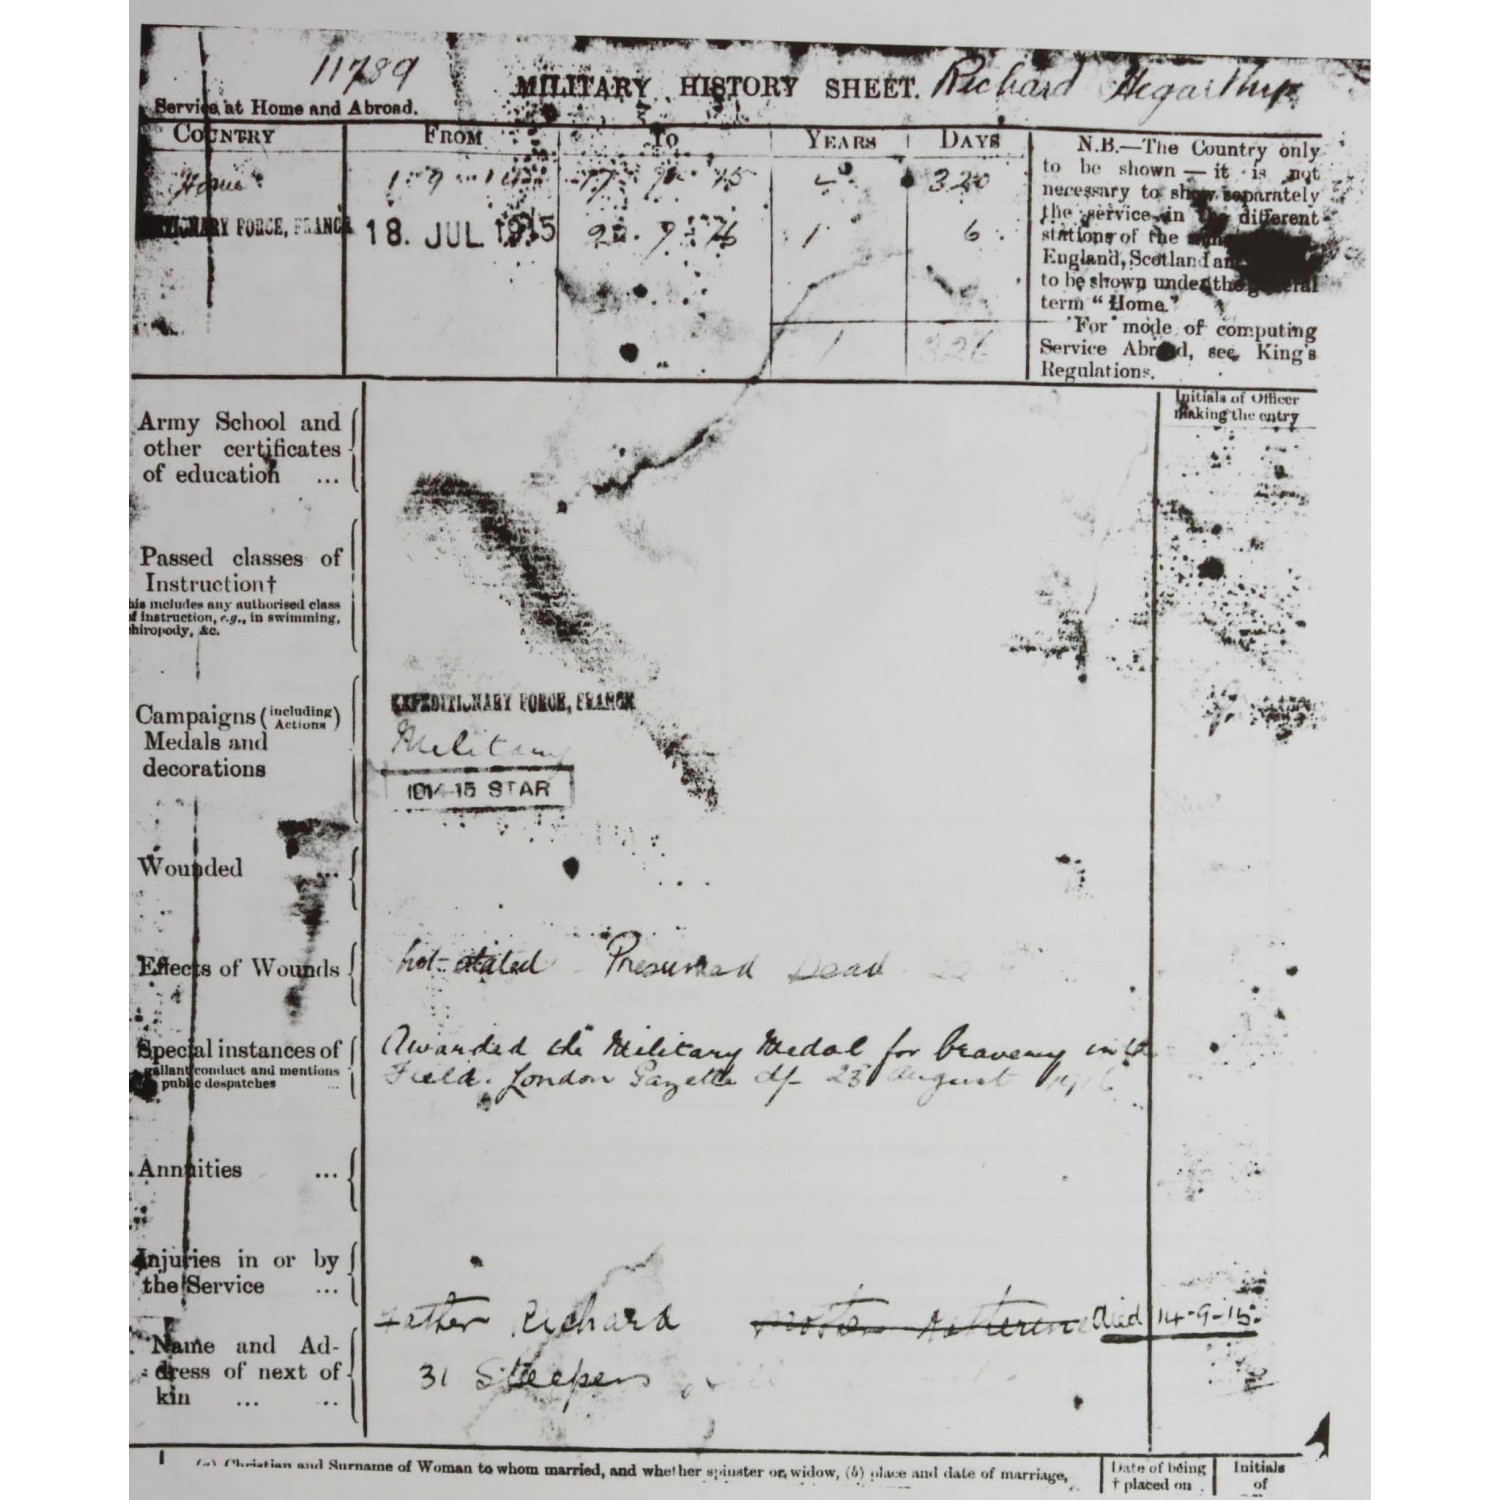 11789
MILITARY HISTORY SHEET. Richard Hegarthy
Service at Home and Abroad.
COUNTRY FROM TO YEARS DAYS
Home 1 9 14 17 15 320
FORCE, FRANCE 18. JUL 1915 9 1 6
1 326
N.B.—The Country only
to be shown — it is not
necessary to show separately
the service in the different
stations of the
England, Scotland
to be shown under the general
term "Home."
For mode of computing
Service Abroad, see King's
Regulations.
Initials of Officer
making the entry
Army School and
other certificates
of education ...
Passed classes of
Instruction†
his includes any authorised class
of instruction, e.g., in swimming,
chiropody, &c.
Campaigns (including Actions)
Medals and
decorations
EXPEDITIONARY FORCE, FRANCE
Military
1914-15 STAR
Wounded ...
Effects of Wounds
not stated Presumed Dead
Special instances of
gallant conduct and mentions
public despatches ...
Awarded the Military Medal for bravery in the
Field. London Gazette df 23 August 1916
Annuities ...
Injuries in or by
the Service ...
Name and Ad-
dress of next of
kin ... ..
Father Richard Mother Katherine died 14-9-15.
31 Steepers
(a) Christian and Surname of Woman to whom married, and whether spinster or widow, (b) place and date of marriage,
Date of being
† placed on
Initials
of